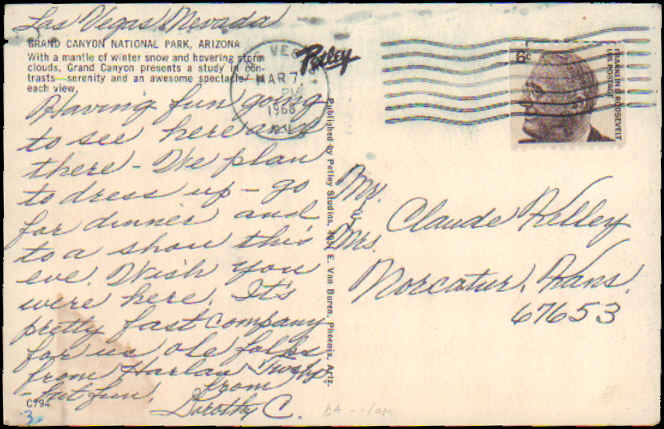 Las Vegas, Nevada
GRAND CANYON NATIONAL PARK, ARIZONA
With a mantle of winter snow and hovering storm
clouds, Grand Canyon presents a study in con-
trasts—serenity and an awesome spectacle in
each view.
Having fun going
to see here and
there - We plan
to dress up - go
for dinner and
to a show this
eve. Wish you
were here. It's
pretty fast company
for us ole folks
from Harlan
- but fun. from
Dorothy C.
C794
3
Petley
Published by Petley Studios, E. Van Buren, Phoenix, Ariz.
VEGAS
MAR 7
PM
1968
6¢
FRANKLIN D. ROOSEVELT
U.S. POSTAGE
Mr.
&
Mrs.
Claude Kelley
Norcatur, Kans.
67653